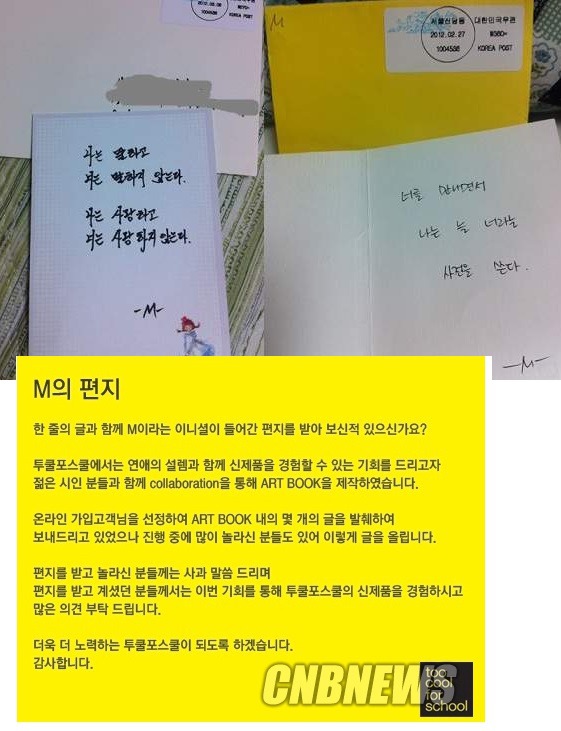 대한민국우관
1004536
KOREA POST
나는 말하고
너는 말하지 않는다.
나는 사랑하고
너는 사랑하지 않는다.
-M-
M
서울신당동 대한민국우관
2012.02.27 ₩360
1004536 KOREA POST
너를 만나면서
나는 늘 너라는
사전을 쓴다.
-M-
M의 편지
한 줄의 글과 함께 M이라는 이니셜이 들어간 편지를 받아 보신적 있으신가요?
투쿨포스쿨에서는 연애의 설렘과 함께 신제품을 경험할 수 있는 기회를 드리고자
젊은 시인 분들과 함께 collaboration을 통해 ART BOOK을 제작하였습니다.
온라인 가입고객님을 선정하여 ART BOOK 내의 몇 개의 글을 발췌하여
보내드리고 있었으나 진행 중에 많이 놀라신 분들도 있어 이렇게 글을 올립니다.
편지를 받고 놀라신 분들께는 사과 말씀 드리며
편지를 받고 계셨던 분들께서는 이번 기회를 통해 투쿨포스쿨의 신제품을 경험하시고
많은 의견 부탁 드립니다.
더욱 더 노력하는 투쿨포스쿨이 되도록 하겠습니다.
감사합니다.
CNBNEWS
too
cool
for
school